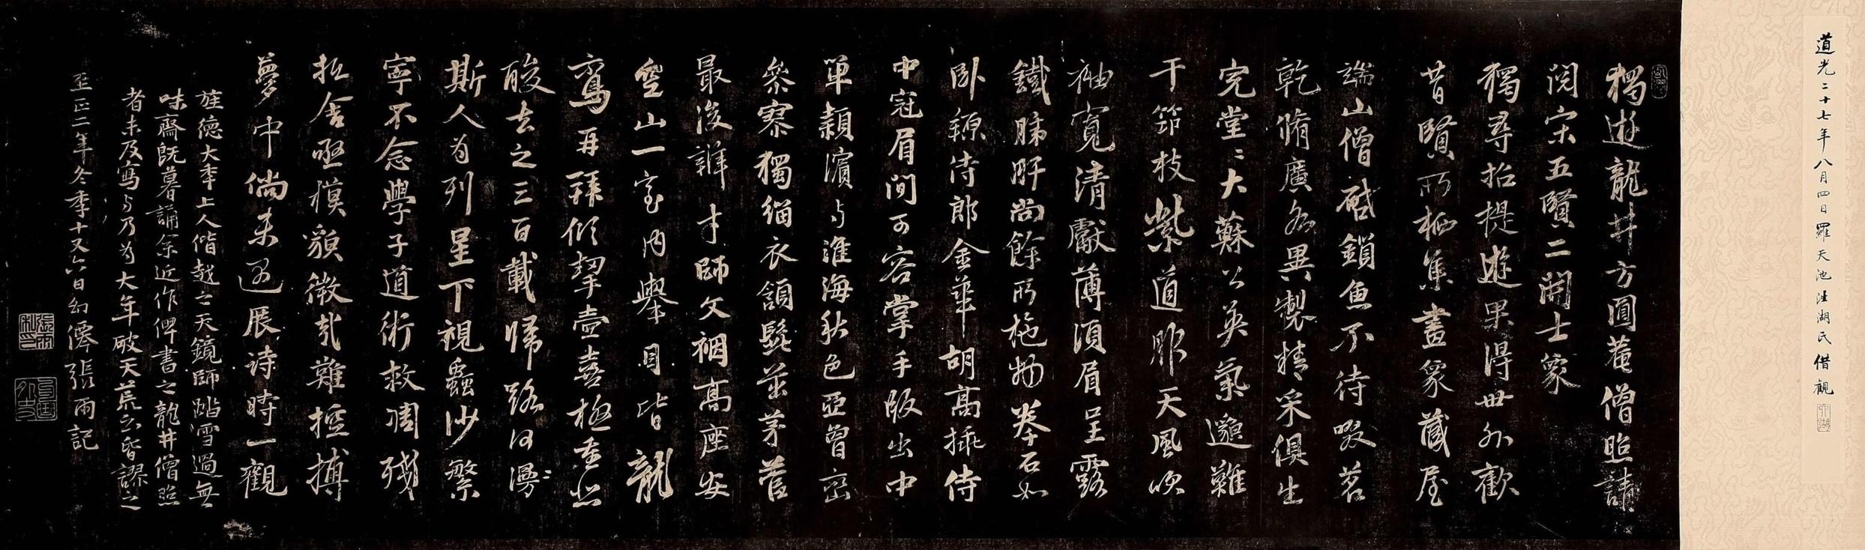 道光二十七年八月四日羅天池洼湖氏借觀
獨遊龍井方圓菴僧照請
閱宋五賢二開士象
獨尋招提遊果得世外歡
昔賢所栖集畫象藏屋
端山僧啟鎖魚不待啜茗
乾脩廣各異製精采俱生
完堂堂大蘇公英氣邈難
干笻枝紫道服天風吹
袖寬清獻薄須眉呈露
鐵肺肝尚餘所施物拳石如
臥穎侍郎金華胡高掛侍
中冠眉間可容掌手版出中
單穎濱與淮海秋色亞曾巒
參寥獨緇衣頷髭並茅菅
最後辯才師文裀高座安
空山一室內舉目皆龍
鸞再拜傾挈壺喜極垂悲
酸去之三百載歸路何漫漫
斯人為列星下視蟲沙繁
寧不念學子道術救凋殘
招舍亟模貌微哉難摶
夢中倘來過展詩時一觀
旌德大季上人偕越之天鏡師踏雪過無
味齋既暮誦余近作俾書之龍井僧照
者未及寫與乃為大年破天荒亦皆謬之
至正二年冬季十又六日幻僊張雨記